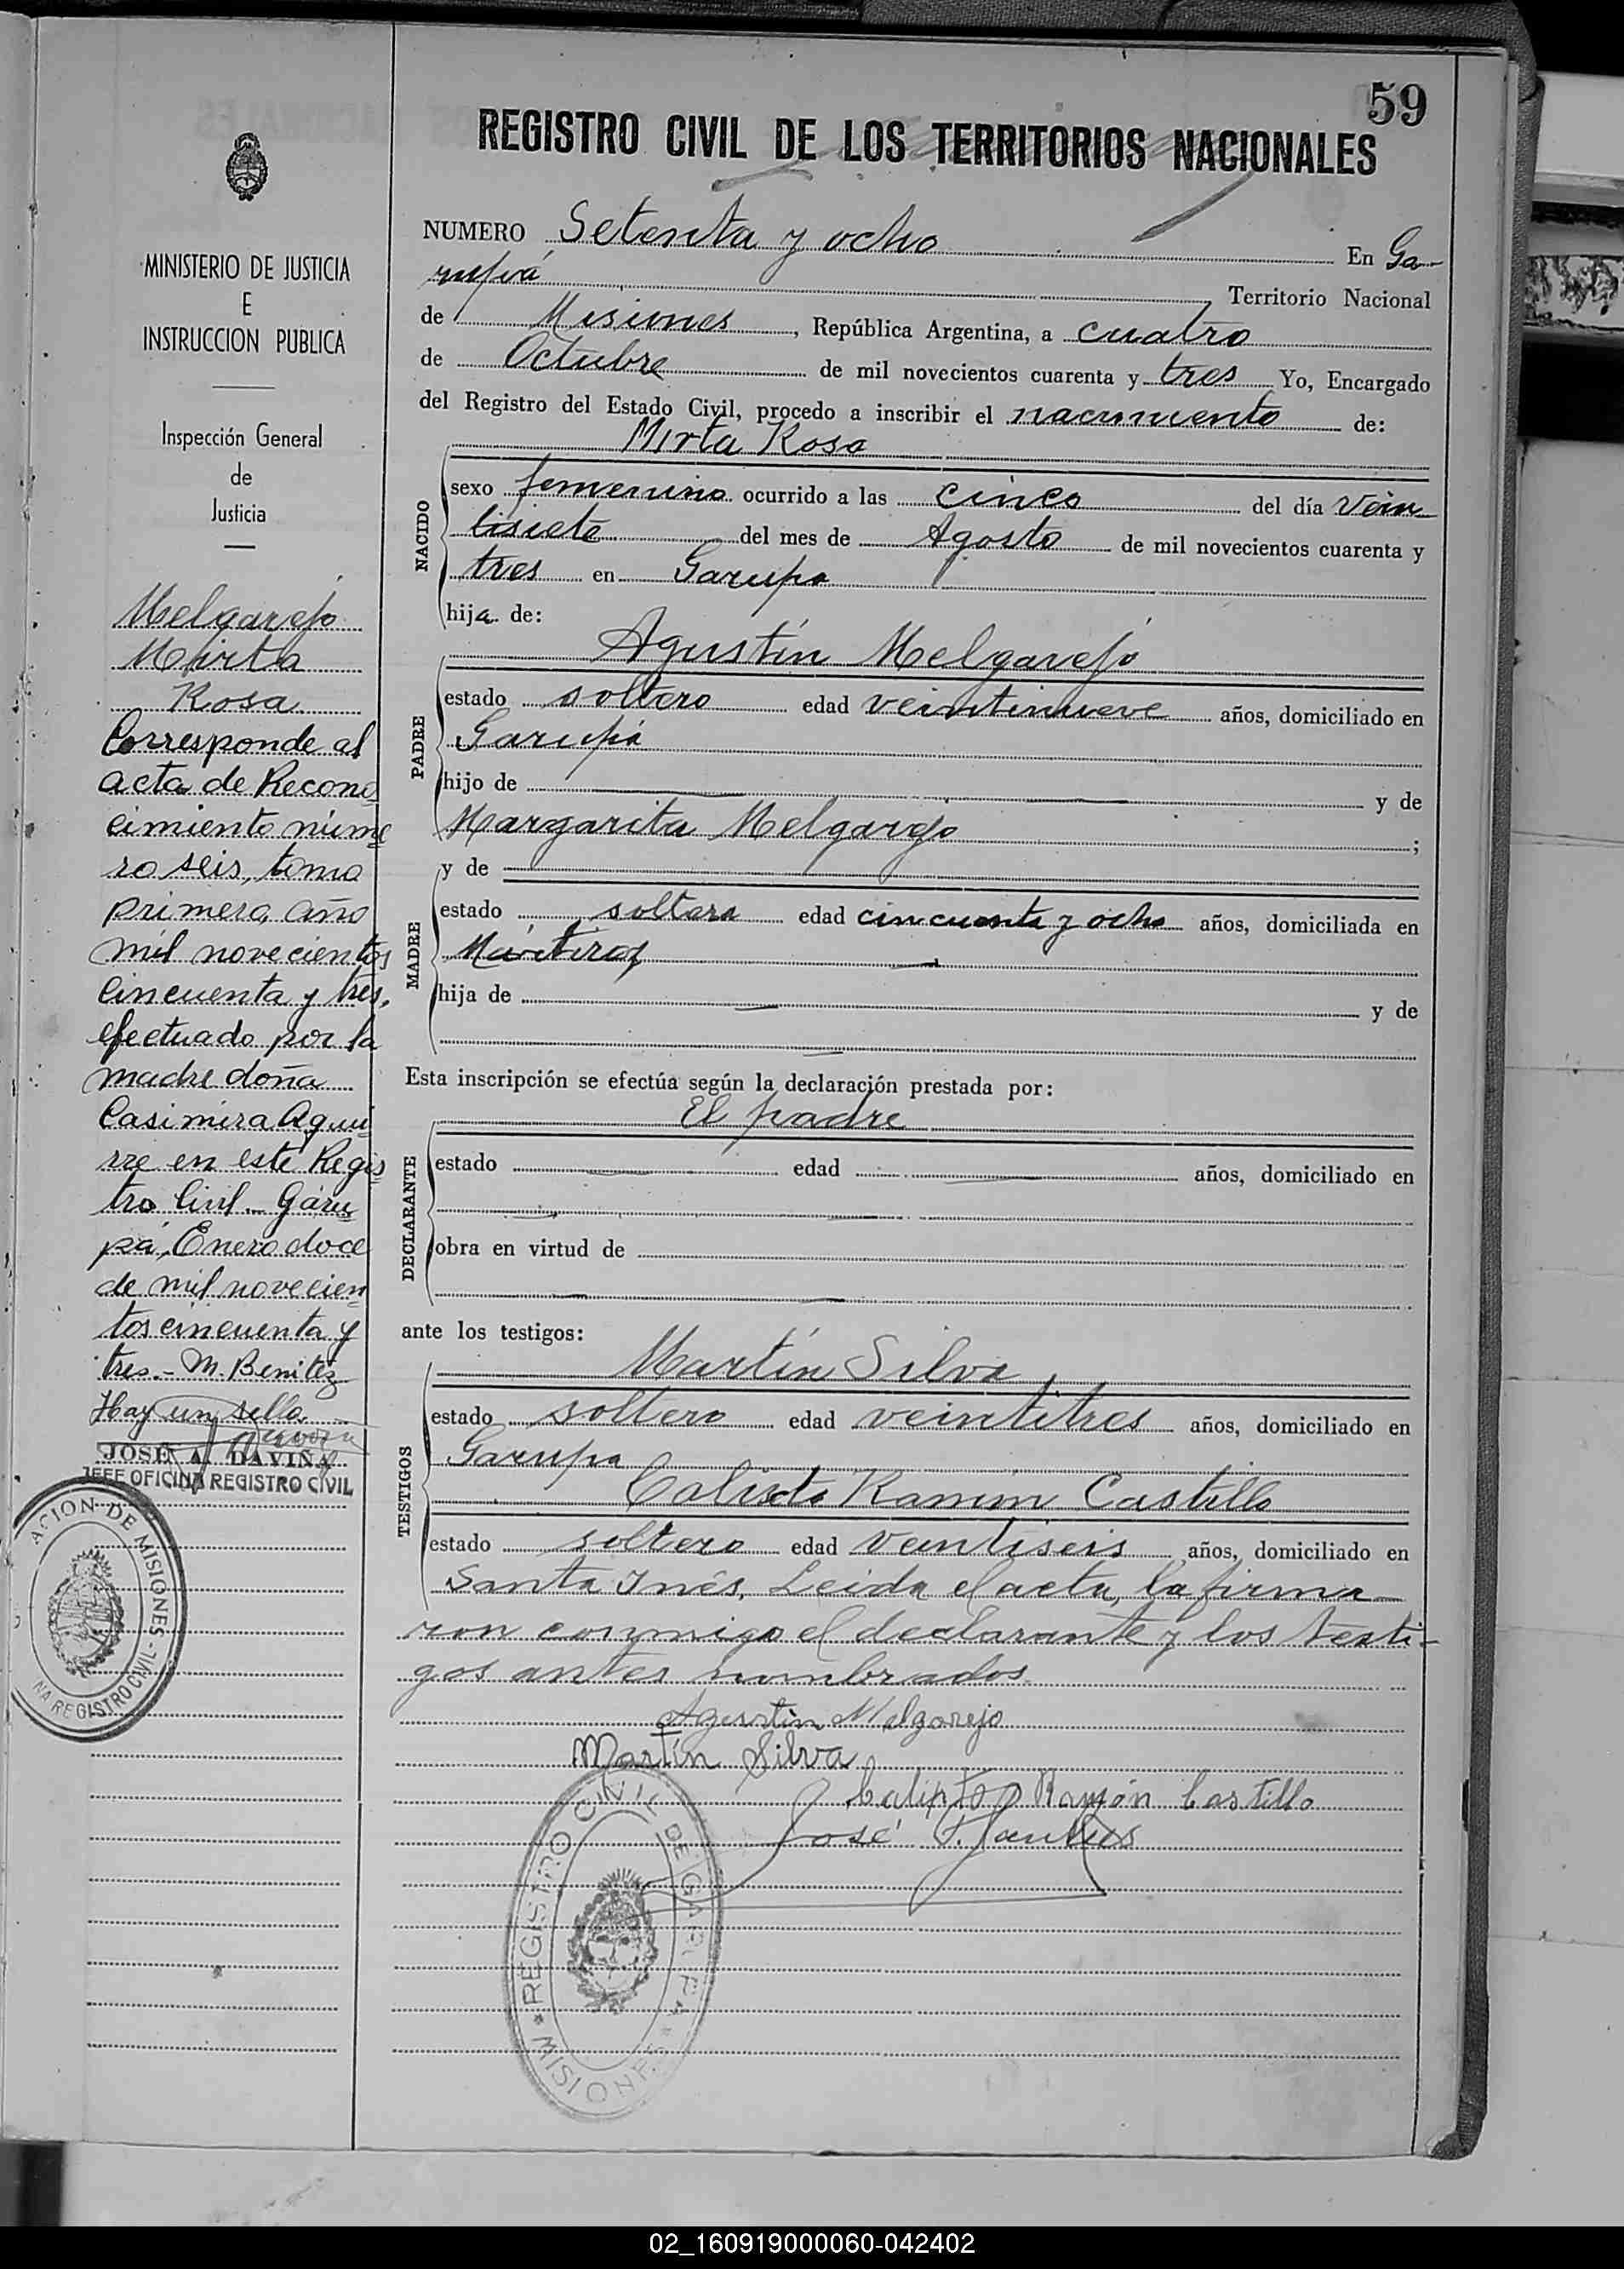 59
REGISTRO CIVIL DE LOS TERRITORIOS NACIONALES
NUMERO Setenta y ocho En Ga-
rupá Territorio Nacional
de Misiones, República Argentina, a cuatro
de Octubre de mil novecientos cuarenta y tres Yo, Encargado
del Registro del Estado Civil, procedo a inscribir el nacimiento de:
Mirta Rosa
NACIDO
sexo femenino ocurrido a las cinco del día Vein-
tisiete del mes de Agosto de mil novecientos cuarenta y
tres en Garupa
hija de:
Agustín Melgarejo
PADRE
estado soltero edad veintinueve años, domiciliado en
Garupá
hijo de y de
Margarita Melgarejo ;
y de
MADRE
estado soltera edad cincuenta y ocho años, domiciliada en
Mártires
hija de y de
Esta inscripción se efectúa según la declaración prestada por:
El padre
DECLARANTE
estado edad años, domiciliado en
obra en virtud de
ante los testigos:
Martín Silva
TESTIGOS
estado soltero edad veintitres años, domiciliado en
Garupa
Calisto Ramón Castillo
estado soltero edad veintiseis años, domiciliado en
Santa Inés, Leida el acta, la firma
ron conmigo el declarante y los testi-
gos antes nombrados.
Agustin Melgarejo
Martín Silva
Calixto Ramón Castillo
José
REGISTRO CIVIL DE GARUPA * MISIONES *
MINISTERIO DE JUSTICIA
E
INSTRUCCION PUBLICA
Inspección General
de
Justicia
Melgarejo
Mirta
Rosa
Corresponde al
acta de Recono
cimiento núme
ro seis, tomo
primero, año
mil novecientos
cincuenta y tres,
efectuado por la
madre doña
Casimira Agui
rre en este Regis
tro Civil. Garu
pá, Enero doce
de mil novecien
tos cincuenta y
tres.- M. Benitez
Hay un sello
JOSE A. DAVIÑA
JEFE OFICINA REGISTRO CIVIL
ACION DE MISIONES - NA REGISTRO CIVIL
02_160919000060-042402